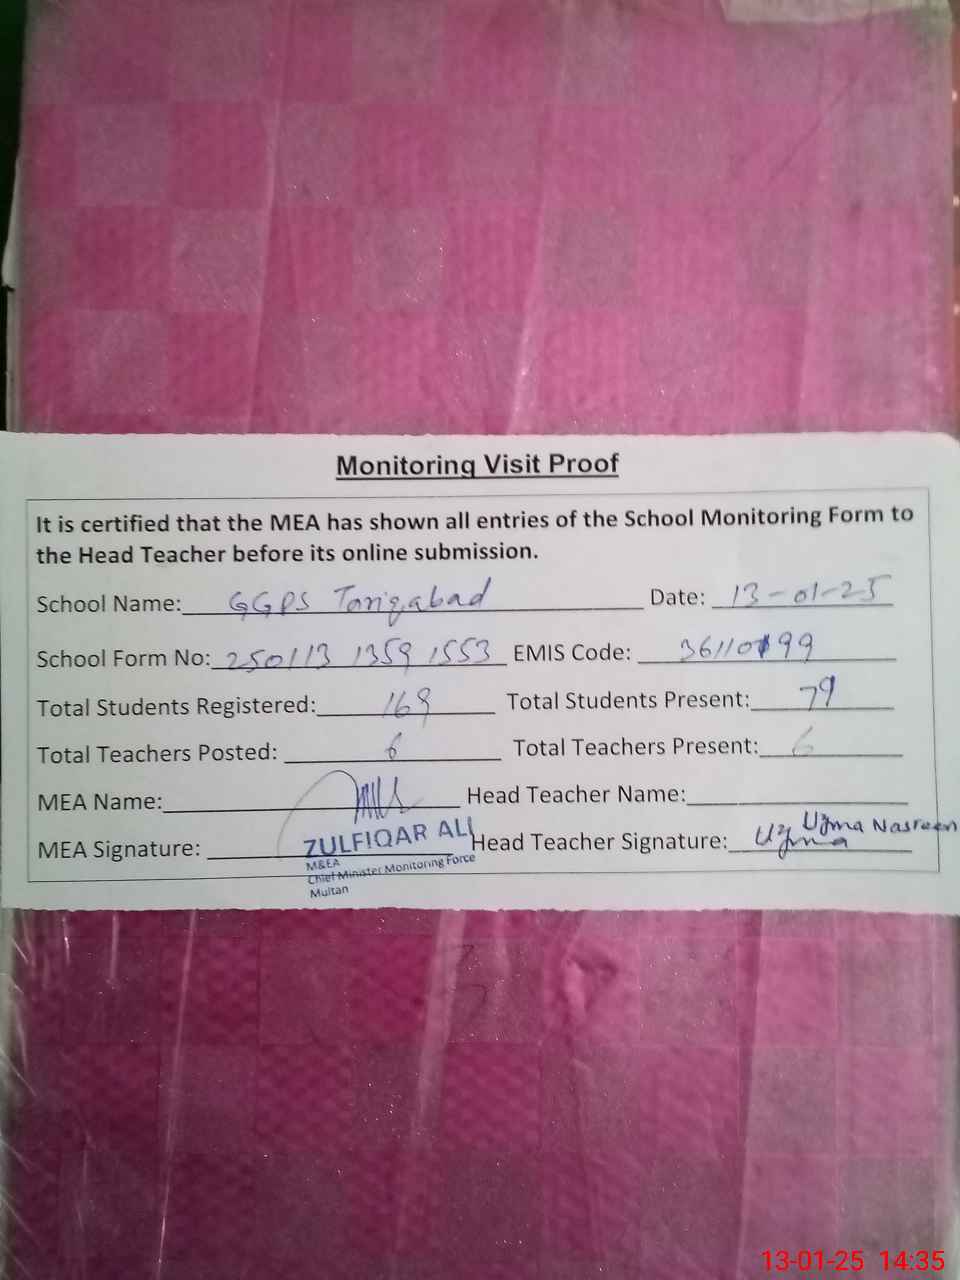 Monitoring Visit Proof
It is certified that the MEA has shown all entries of the School Monitoring Form to
the Head Teacher before its online submission.
School Name: GGPS Tariqabad Date: 13-01-25
School Form No: 250113 1359 1553 EMIS Code: 36110199
Total Students Registered: 169 Total Students Present: 79
Total Teachers Posted: 6 Total Teachers Present: 6
MEA Name: Head Teacher Name:
MEA Signature: Head Teacher Signature: Uzma
Uzma Nasreen
ZULFIQAR ALI
M&EA
Chief Minister Monitoring Force
Multan
13-01-25 14:35